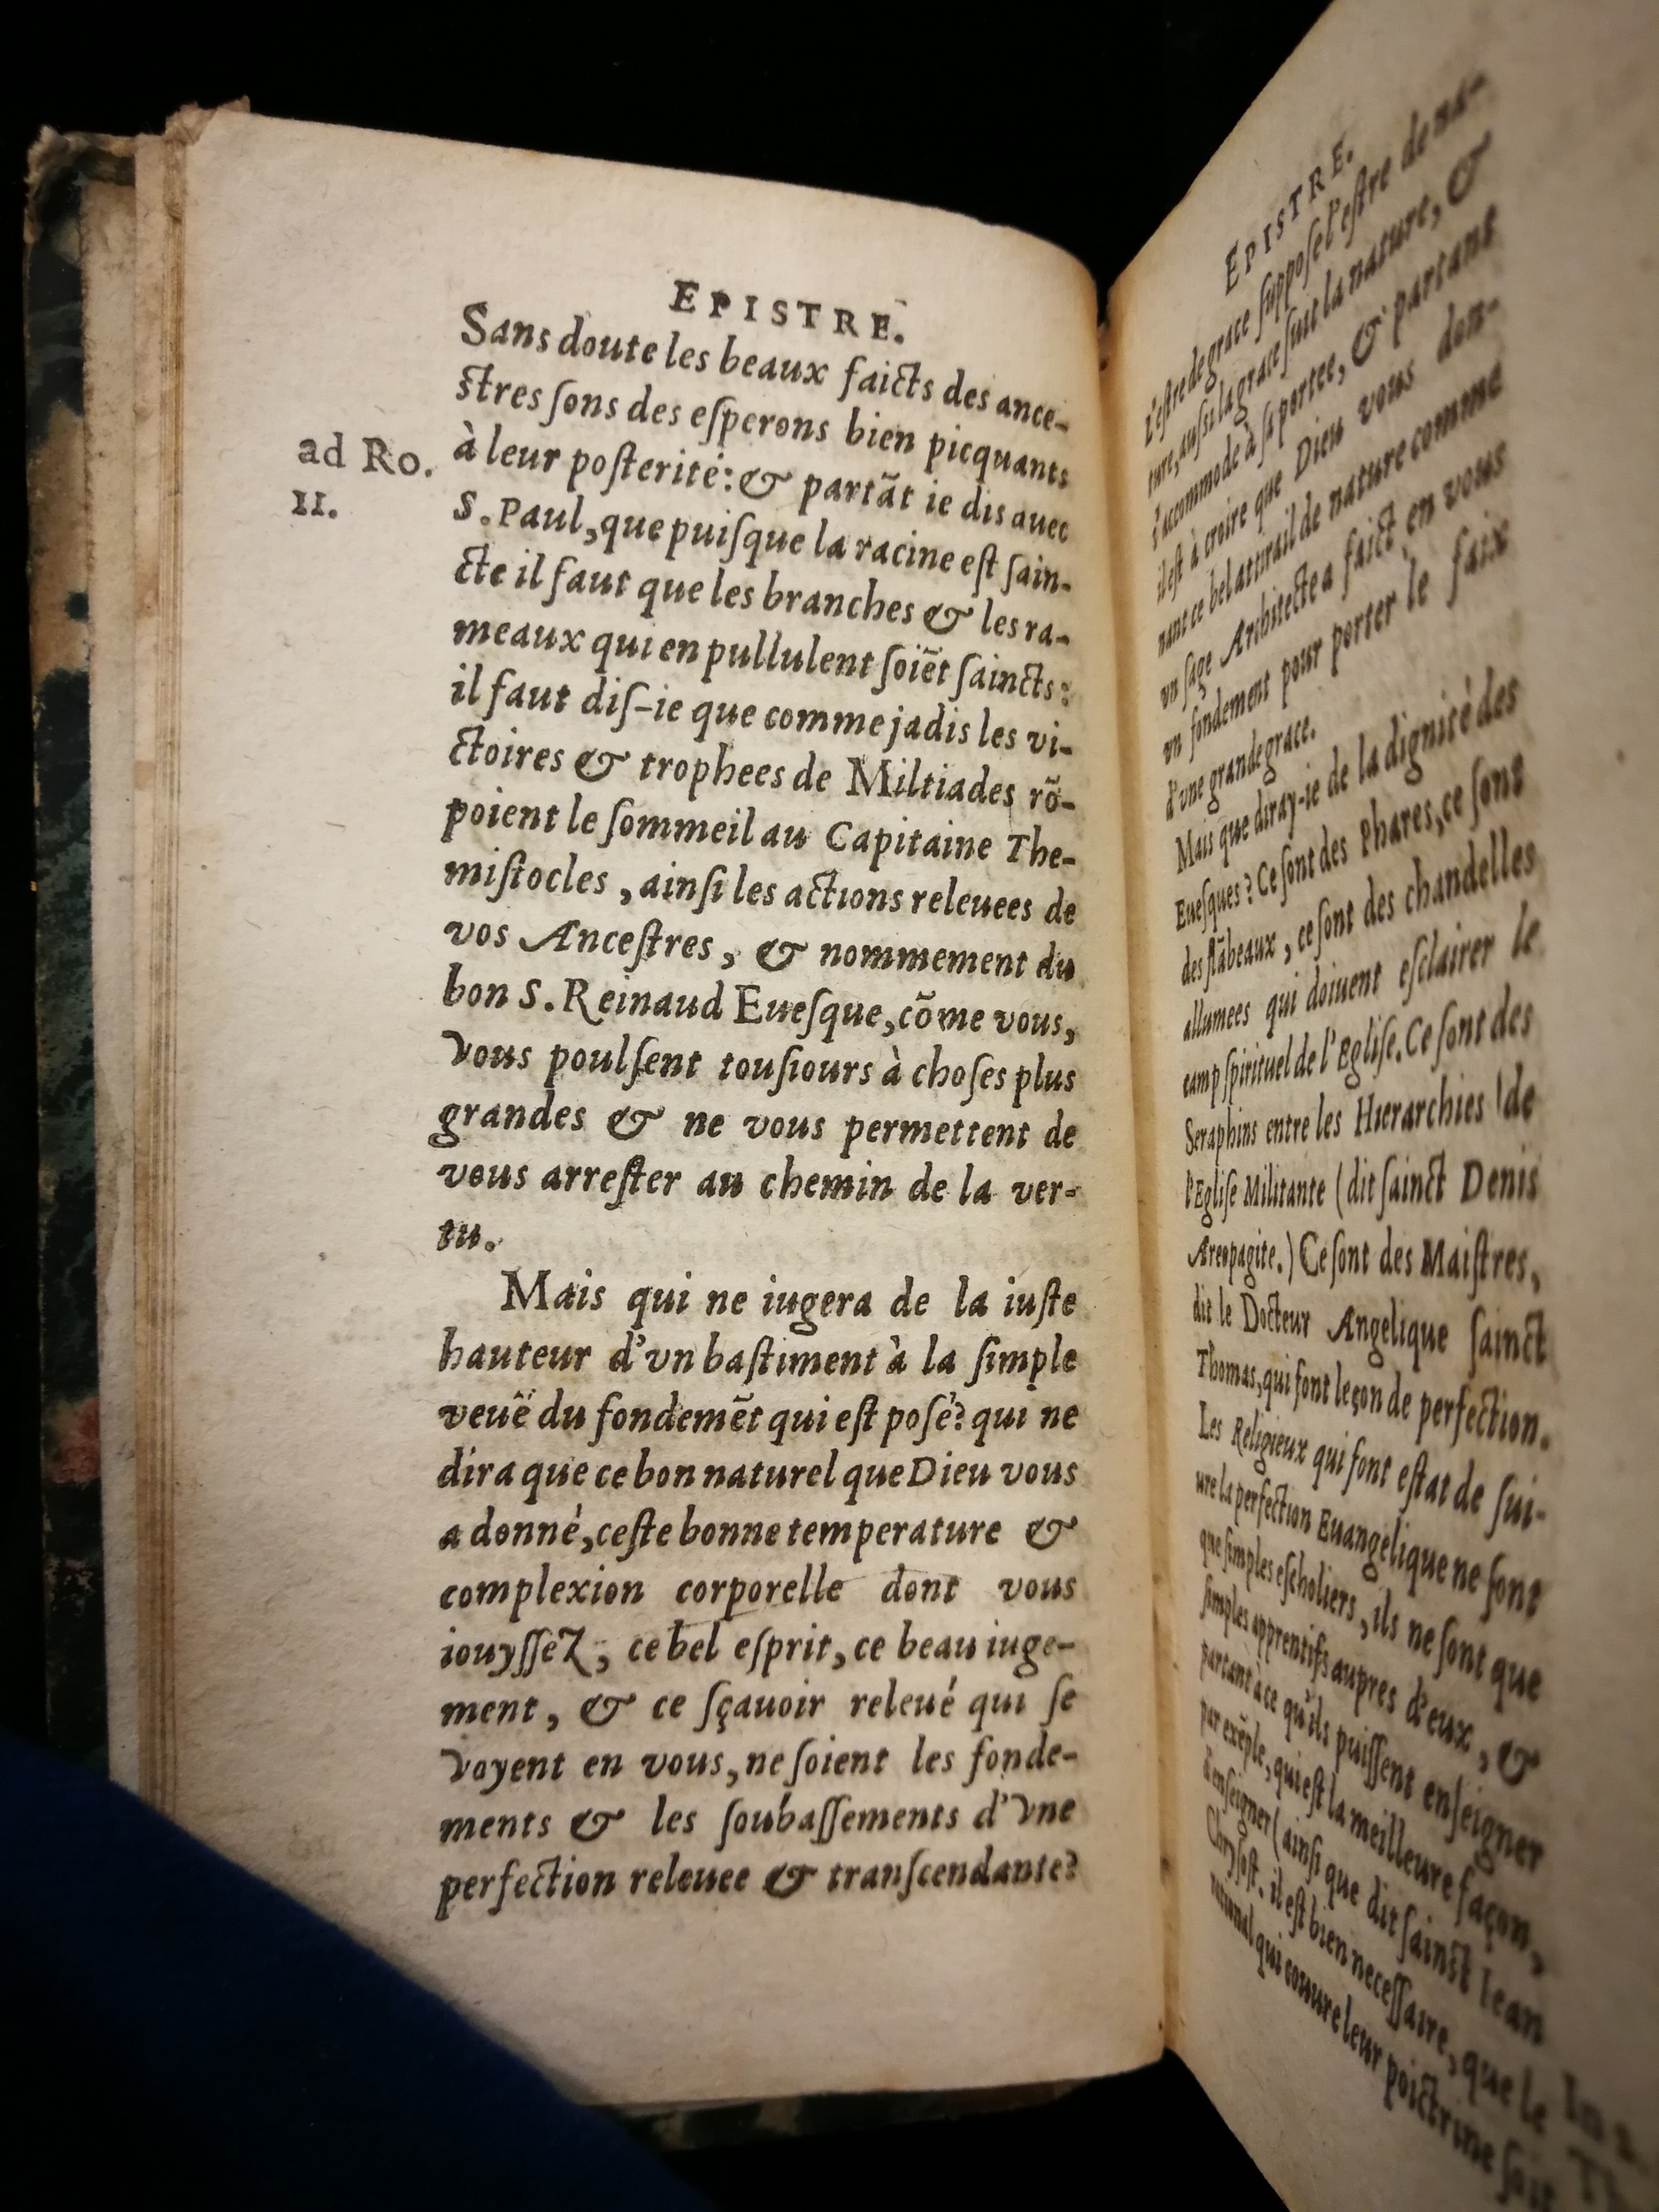 EPISTRE.
Sans doute les beaux faicts des ance-
ſtres ſons des eſperons bien picquants
à leur poſterité: & partãt ie dis auec
ad Ro.
11.
S. Paul, que puiſque la racine eſt ſain-
cte il faut que les branches & les ra-
meaux qui en pullulent ſoiẽt ſaincts:
il faut diſ-ie que comme jadis les vi-
ctoires & trophees de Miltiades rõ-
poient le ſommeil au Capitaine The-
miſtocles, ainſi les actions releuees de
vos Anceſtres, & nommement du
bon S. Reinaud Eueſque, cõme vous,
vous poulſent touſiours à choſes plus
grandes & ne vous permettent de
vous arreſter au chemin de la ver-
tu.
Mais qui ne iugera de la iuſte
hauteur d'vn baſtiment à la ſimple
veuë du fondemẽt qui eſt poſé? qui ne
dira que ce bon naturel que Dieu vous
a donné, ceſte bonne temperature &
complexion corporelle dont vous
iouyſſez, ce bel eſprit, ce beau iuge-
ment, & ce ſçauoir releué qui ſe
voyent en vous, ne ſoient les fonde-
ments & les ſoubaſſements d'vne
perfection releuee & tranſcendante?
EPISTRE.
L'eſtre de grace ſuppoſe l'eſtre de na-
ture, auſsi la grace ſuit la nature, &
s'accommode à ſa portee, & partant
il eſt à croire que Dieu vous don-
nant ce bel attirail de nature comme
vn ſage Architecte a faict en vous
vn fondement pour porter le faix
d'vne grande grace.
Mais que diray-ie de la dignité des
Eueſques? Ce ſont des Phares, ce ſont
des flãbeaux, ce ſont des chandelles
allumees qui doiuent eſclairer le
camp ſpirituel de l'Egliſe. Ce ſont des
Seraphins entre les Hierarchies de
l'Egliſe Militante (dit ſainct Denis
Areopagite.) Ce ſont des Maiſtres,
dit le Docteur Angelique ſainct
Thomas, qui font leçon de perfection.
Les Religieux qui font eſtat de ſui-
ure la perfection Euangelique ne ſont
que ſimples eſcholiers, ils ne ſont que
ſimples apprentifs aupres d'eux, &
partant à ce qu'ils puiſſent enſeigner
par exẽple, qui eſt la meilleure façon,
d'enſeigner (ainſi que dit ſainct Iean
Chryſoſt. il eſt bien neceſſaire, que le
rational qui couure leur poictrine ſoit